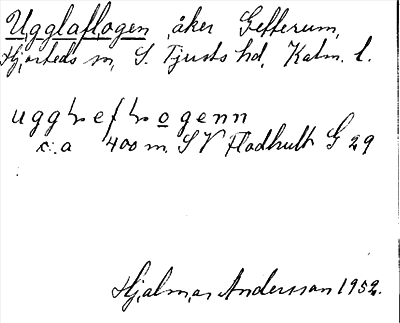 Ugglaflogen åker Gefferum,
Hjorteds sn, S. Tjusts hd, Kalm. l.
c:a 400 m. SV Flodhult G 29
Hjalmar Andersson 1952.